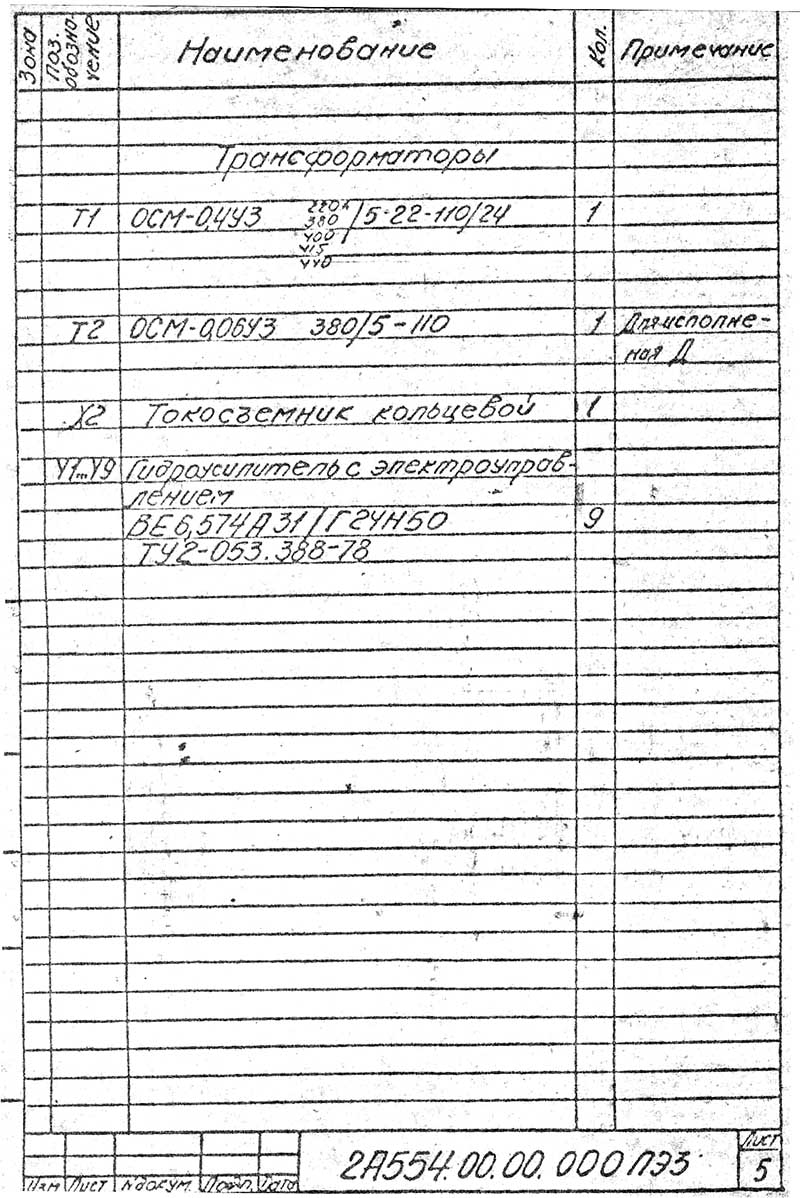 Зона
Поз. обозна-
чение
Наименование
Кол.
Примечание
Трансформаторы
Т1 ОСМ-0,4У3 220 /5-22-110/24 1
380
400
415
440
Т2 ОСМ-0,06У3 380/5-110 1 Для исполне-
ная Д
X2 Токосъемник кольцевой 1
У1...У9 Гидроусилитель с электроуправ-
лением
ВЕ6,574А31/Г24Н50 9
ТУ2-053.388-78
2А554.00.00.000 ПЭ3
Лист
5
Изм Лист N докум. Подп. Дата